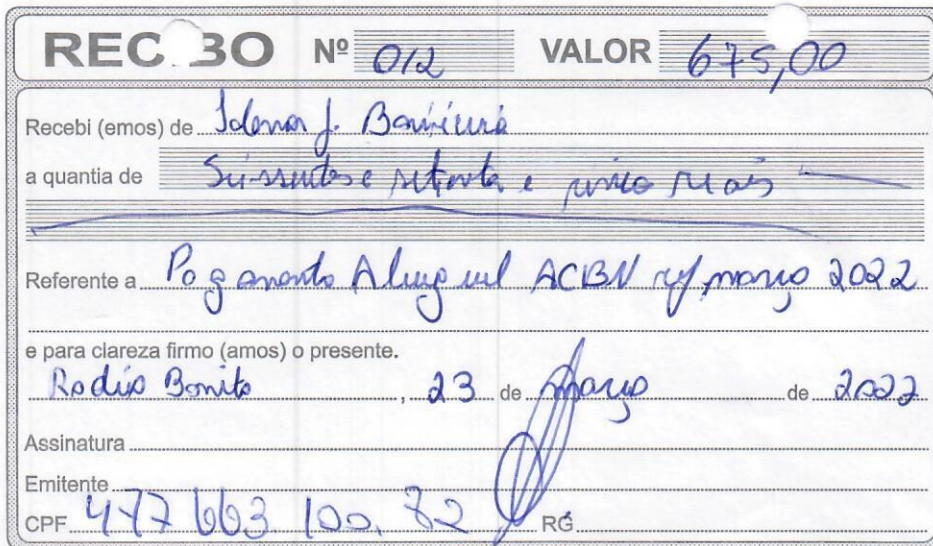 RECIBO Nº 012 VALOR 675,00
Recebi (emos) de J.
a quantia de Seissentos e setenta e cinco reais
Referente a Pagamento Aluguel ACBN março 2022
e para clareza firmo (amos) o presente.
Rodeio Bonito, 23 de março de 2022
Assinatura
Emitente
CPF 477 663 100. 82 RG